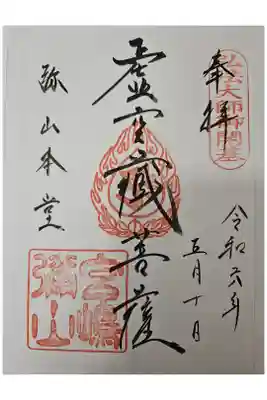 奉拝
弘法大師御開基
令和六年
五月十日
虚空蔵菩薩
弥山本堂
宮嶋
彌山